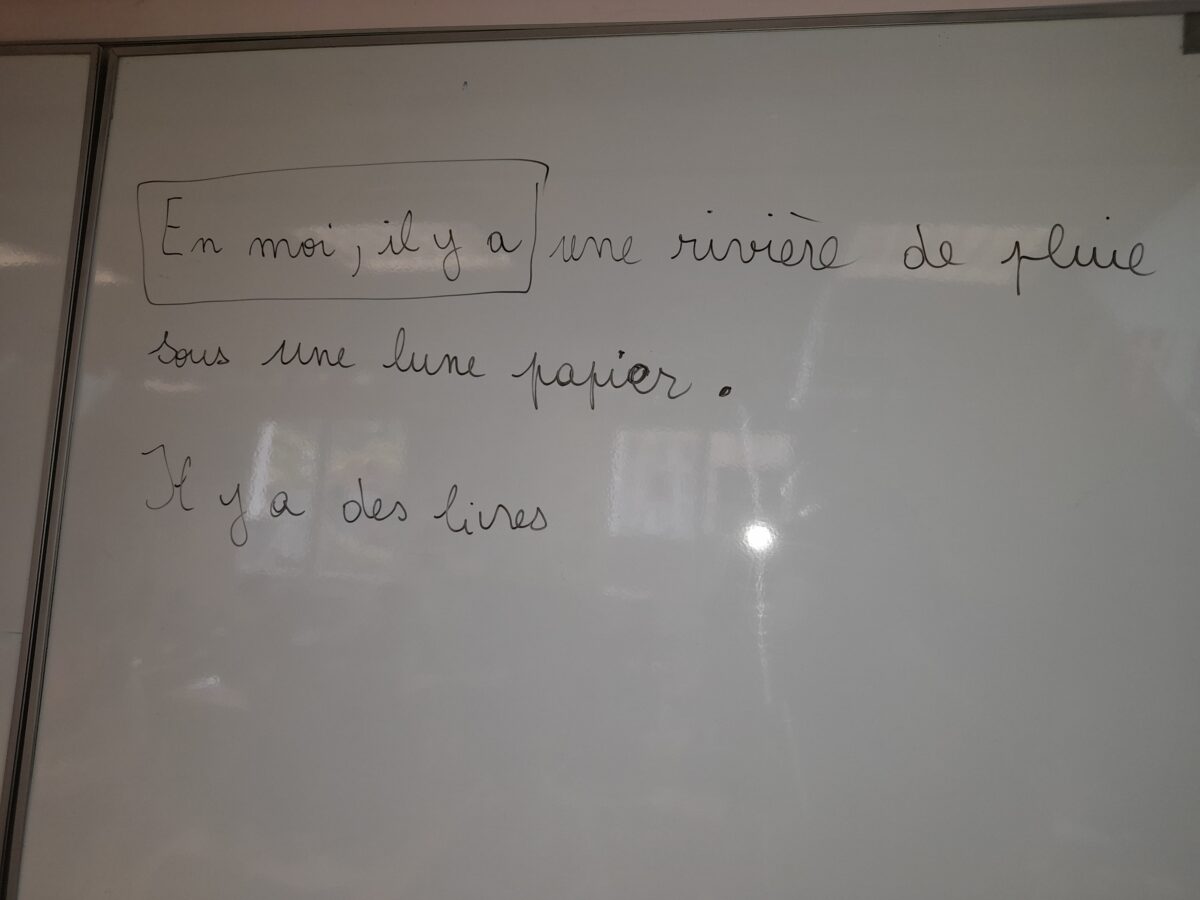 En moi, il y a une rivière de pluie
sous une lune papier.
Il y a des livres